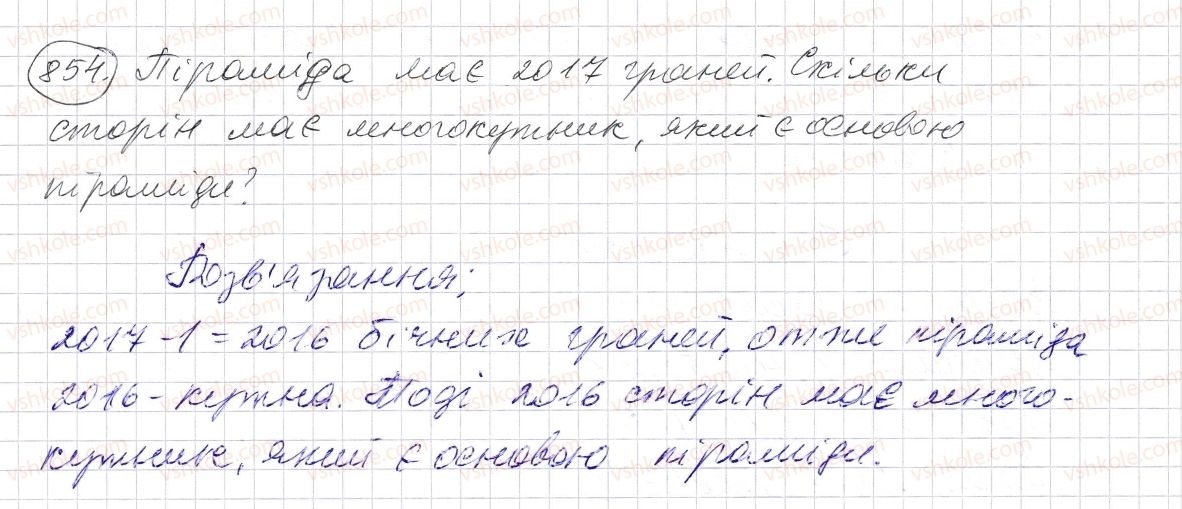 854. Піраміда має 2017 граней. Скільки
сторін має многокутник, який є основою
піраміди?
Розв'язання;
2017-1=2016 бічних граней, отже піраміда
2016-кутна. Тоді 2016 сторін має много-
кутник, який є основою піраміди.